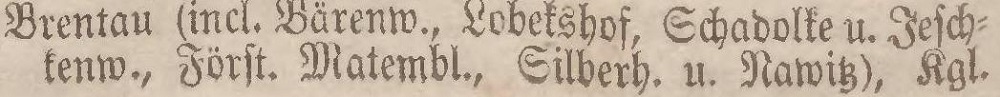 Brentau (incl. Bärenw., Lobekshof, Schadolke u. Jesch-
kenw., Först. Matembl., Silberh. u. Nawitz), Kgl.